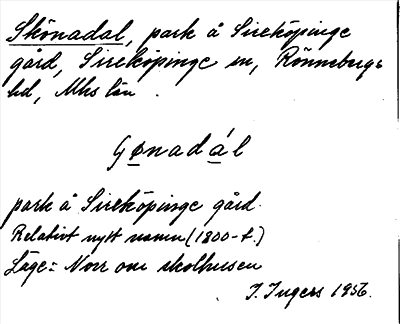 Skönadal, park å Sireköpinge
gård, Sireköpinge sn, Rönnebergs
hd, Mhs län.
Gønadál
park å Sireköpinge gård.
Relativt nytt namn (1800-t.)
Läge: Norr om skolhusen
I. Ingers 1956.